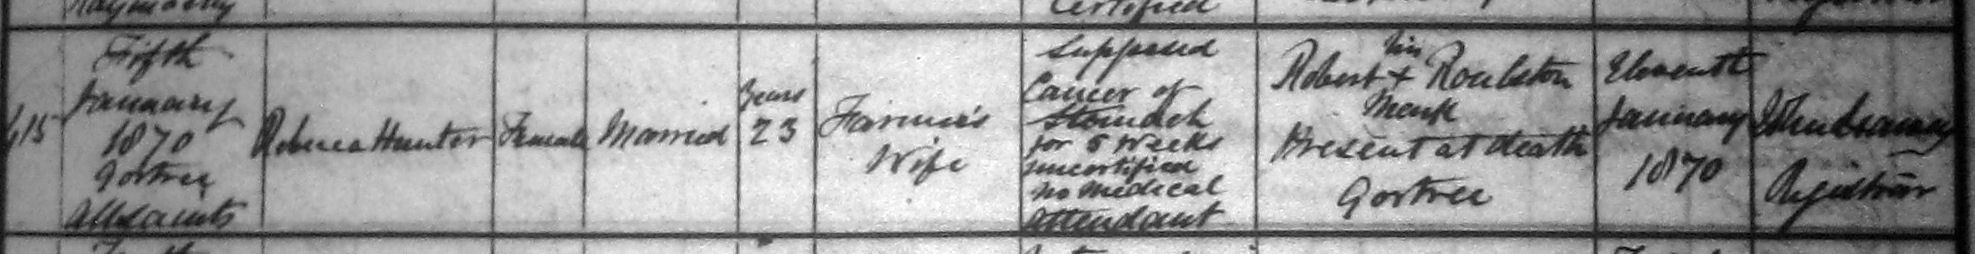 Certified
415
Fifth
January
1870
Gortree
Allsaints
Rebecca Hunter
Female
Married
Years
73
Farmer's
Wife
Supposed
Cancer of
Stomach
for 6 Weeks
uncertified
no medical
attendant
his
Robert + Roulston
Mark
Present at death
Gortree
Eleventh
January
1870
John
Registrar